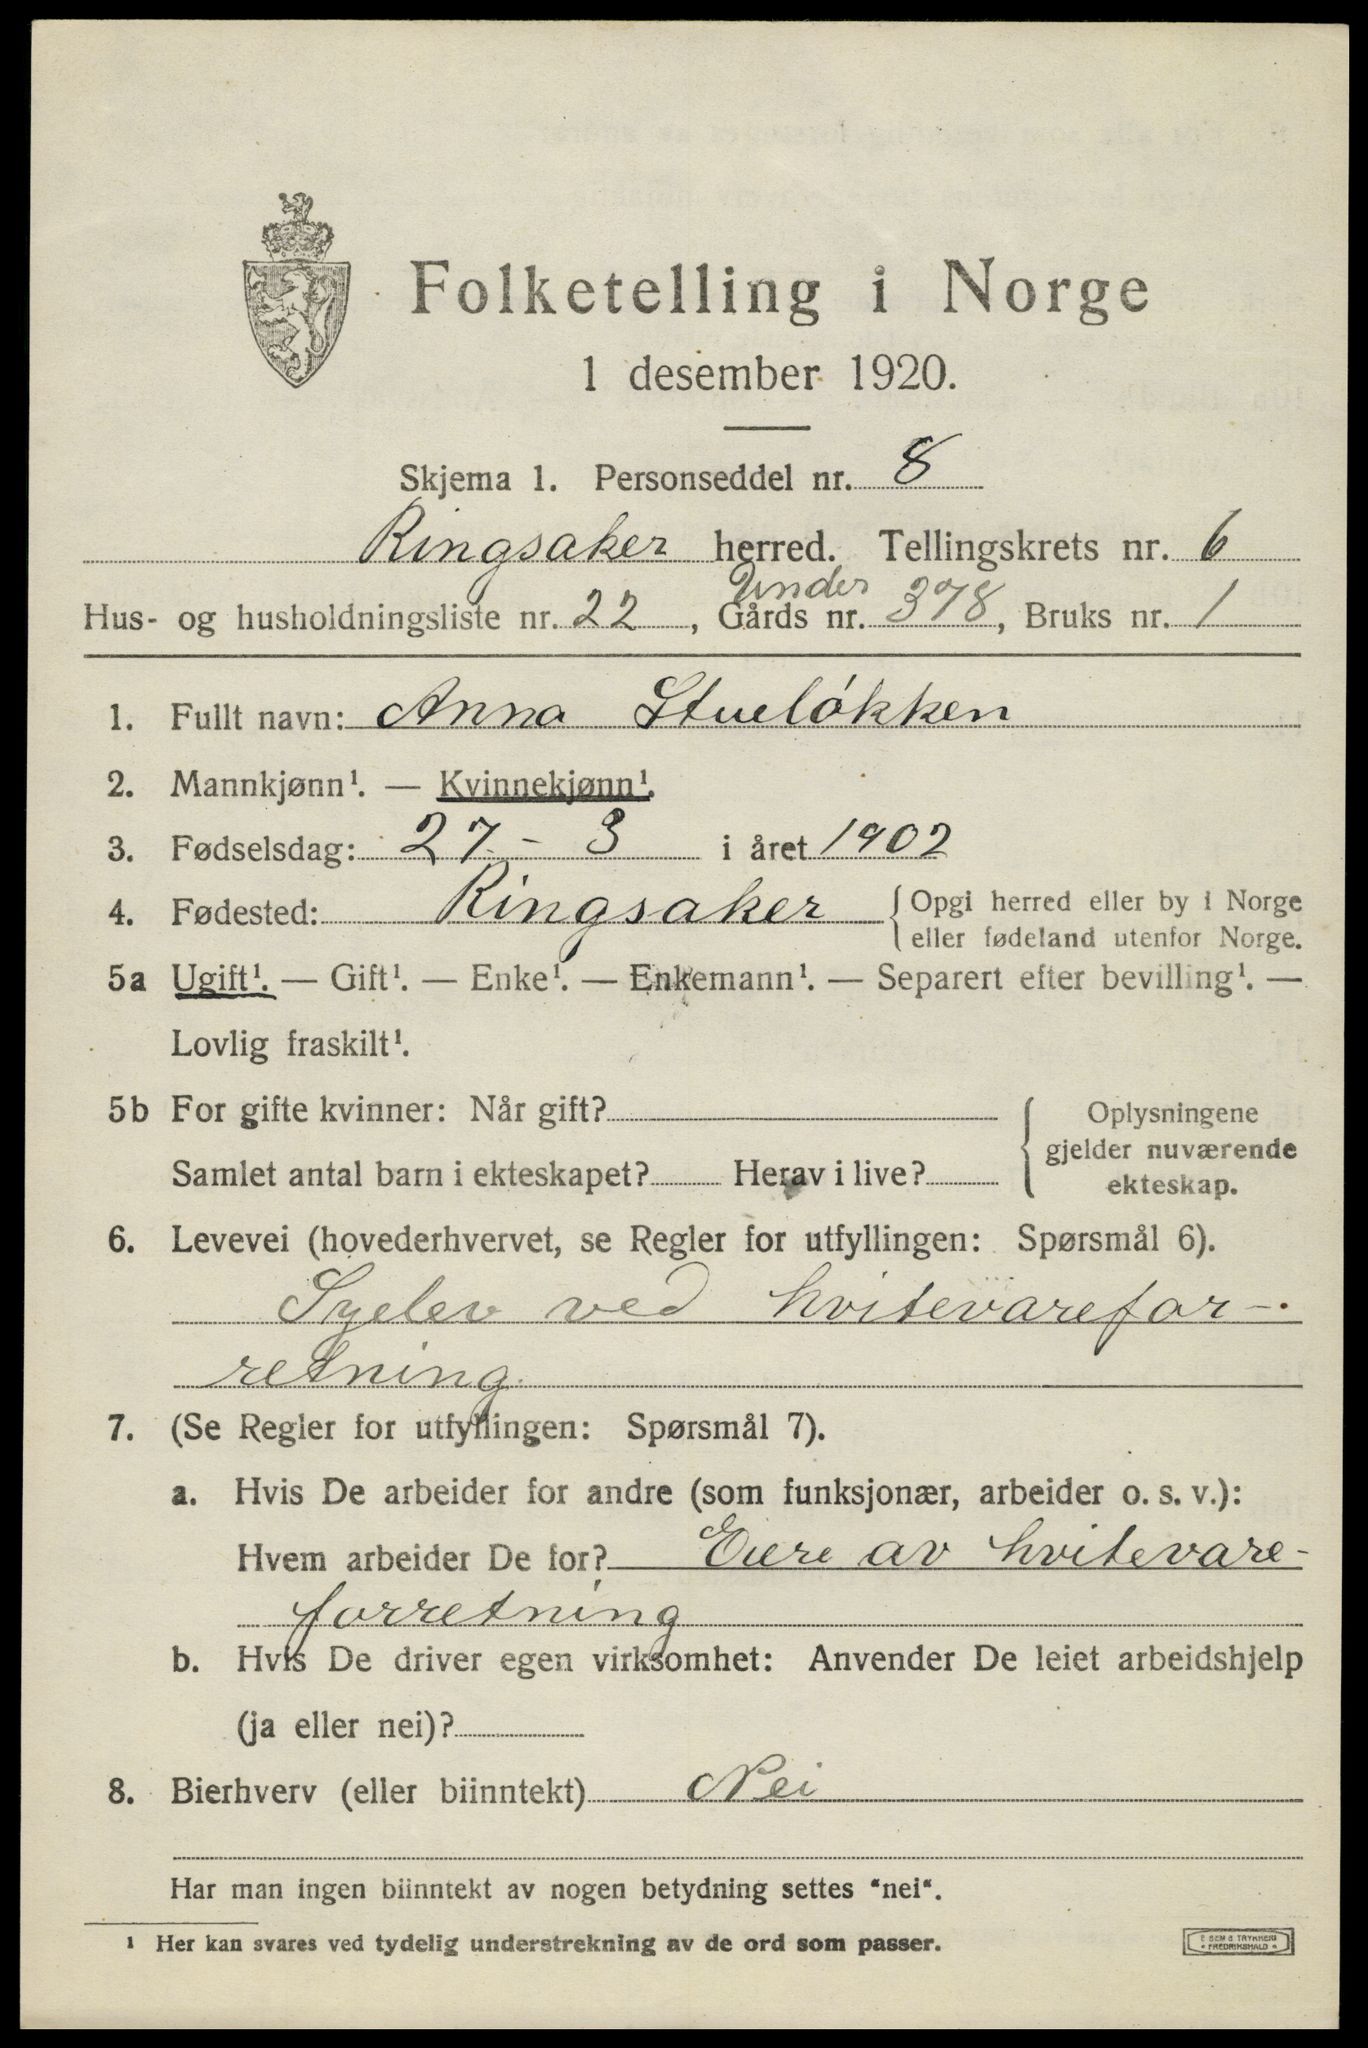 Folketelling i Norge
1 desember 1920.
Skjema 1. Personseddel nr. 8
Ringsaker herred. Tellingskrets nr. 6
Under
Hus- og husholdningsliste nr. 22, Gårds nr. 378, Bruks nr. 1
1. Fullt navn: Anna Stueløkken
2. Mannkjønn¹. — Kvinnekjønn¹.
3. Fødselsdag: 27 - 3 i året 1902
4. Fødested: Ringsaker { Opgi herred eller by i Norge
eller fødeland utenfor Norge.
5a Ugift¹. — Gift¹. — Enke¹. — Enkemann¹. — Separert efter bevilling¹. —
Lovlig fraskilt¹.
5b For gifte kvinner: Når gift?
Samlet antal barn i ekteskapet? Herav i live?
{ Oplysningene
gjelder nuværende
ekteskap.
6. Levevei (hovederhvervet, se Regler for utfyllingen: Spørsmål 6).
Syelev ved hvitevarefor-
retning.
7. (Se Regler for utfyllingen: Spørsmål 7).
a. Hvis De arbeider for andre (som funksjonær, arbeider o. s. v.):
Hvem arbeider De for? Eiere av hvitevare-
forretning
b. Hvis De driver egen virksomhet: Anvender De leiet arbeidshjelp
(ja eller nei)?
8. Bierhverv (eller biinntekt) Nei
Har man ingen biinntekt av nogen betydning settes "nei".
¹ Her kan svares ved tydelig understrekning av de ord som passer.
TRYKKERI
FREDRIKSHALD